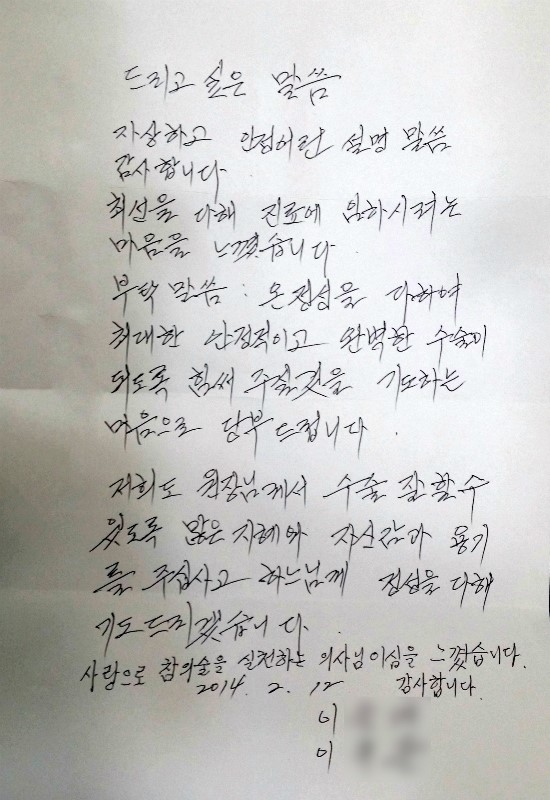 드리고 싶은 말씀
자상하고 안정어린 설명 말씀
감사합니다.
최선을 다해 진료에 임하시려는
마음을 느꼈습니다.
부탁 말씀 : 온 정성을 다하여
최대한 안정적이고 완벽한 수술이
되도록 힘써 주실것을 기도하는
마음으로 당부드립니다.
저희도 원장님께서 수술 잘 할 수
있도록 많은 지혜와 자신감과 용기
를 주십사고 하느님께 정성을 다해
기도드리겠습니다.
사랑으로 참의술을 실천하는 의사님이심을 느꼈습니다.
2014. 2. 12 감사합니다.
이
이